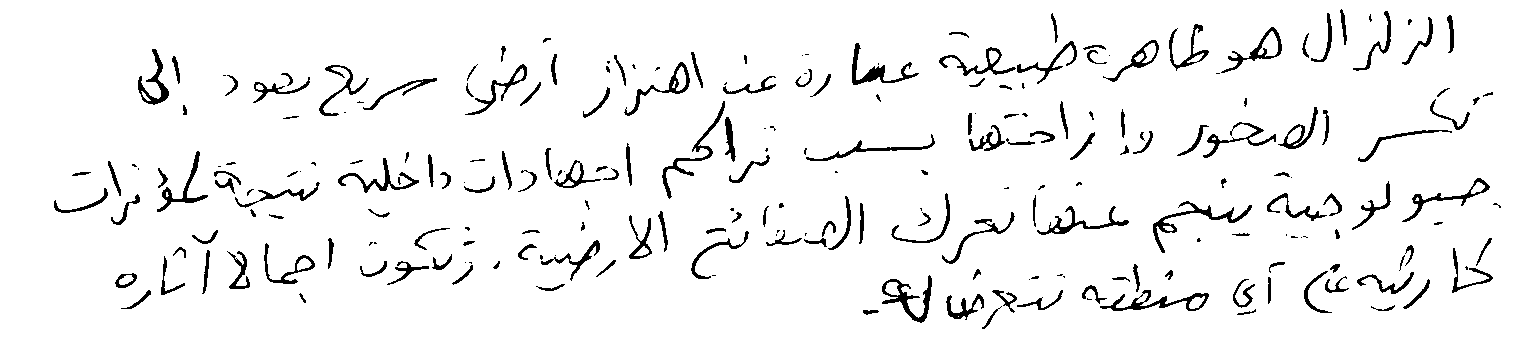 الزلزال هو ظاهرة طبيعية عبارة عن اهتزاز أرضي سريع يعود إلى
تكسر الصخور وإزاحتها بسبب تراكم اجهادات داخلية نتيجة لمؤثرات
جيولوجية ينجم عنها تحرك الصفائح الارضية. وتكون اجمالا آثاره
كارثية على أي منطقة تتعرض له.